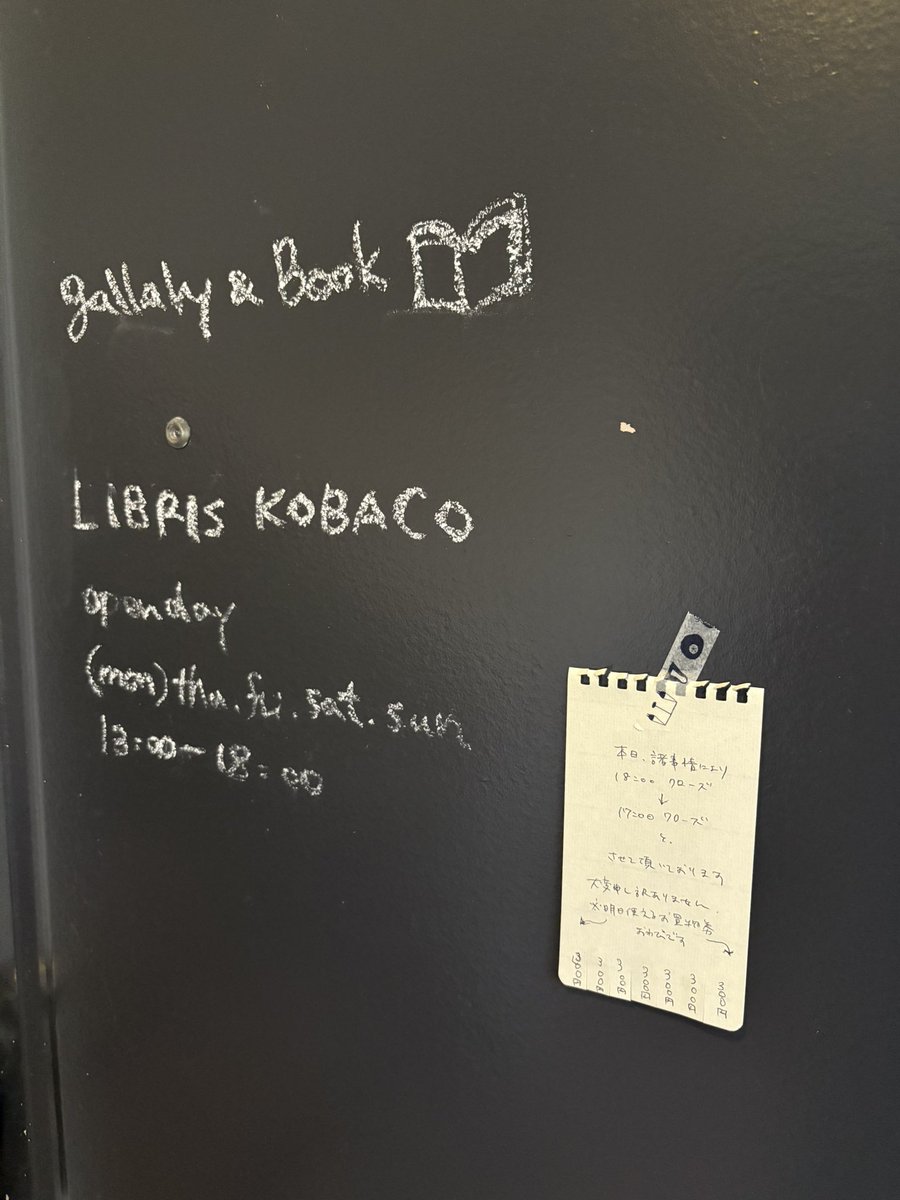 gallaly & Book
LIBRIS KOBACO
openday
(mon) thu. fri. sat. sun
13:00~18:00
本日、諸事情により
18:00 クローズ
↓
17:00 クローズ
と、
させて頂いております
大変申し訳ありません。
※明日使えるお買物券
おわびです
300円 300円 300円 300円 300円 300円 300円